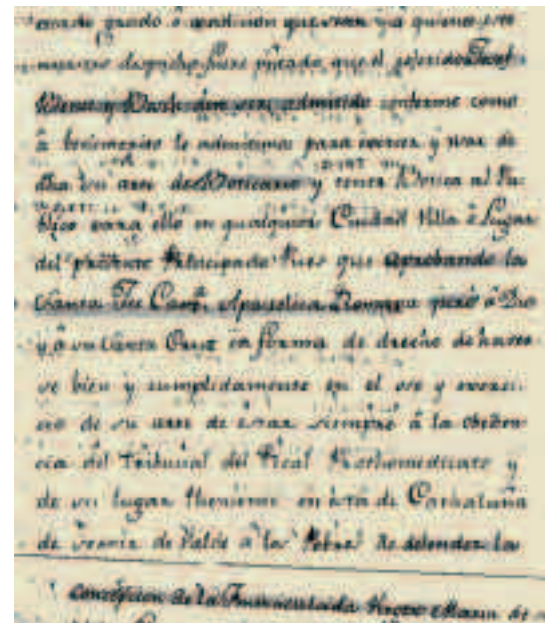 grado o condicion que sean y a quienes
que el referido Josef
ser admitido conforme como
a benemerito le admitimos para exercer y usar de
dha su arte de Boticario y tener Botica al Pu
blico para ello en qualquier Ciudad Villa o Lugar
del presente Principado Pues que aprobando la
Santa Fee Cata. Apostolica Romana juró â Dio
y â su Santa Cruz en forma de drecho de haver
se bien y cumplidamente en el uso y exerci
cio de su arte de estar siempre â la obedien
cia del Tribunal del Real Prothomedicato y
de su lugar theniente en esta de Cathaluña
de servir de valde â los Pobres de defender la
concepcion de la Immaculada Virgen Maria de